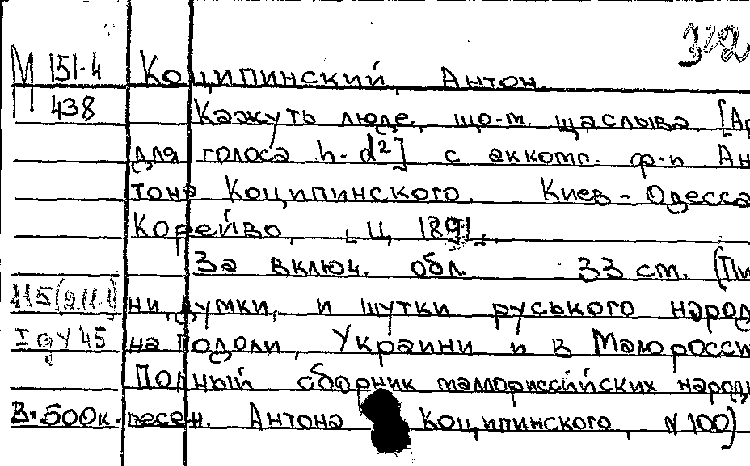 322
М 151-4 Коципинский, Антон.
438 Кажуть люде, що-м щаслыва [Ар
для голоса h-d²] с аккомп. ф-п Ан
тона Коципинского. Киев - Одесса
Корейво, ц. 1891.
За включ. обл. 33 см. (Пи
ни, думки, и шутки руського народ
на Подоли, Украини и в Малоросси
Полный сборник малороссийских народ
В.-500к. песен. Антона Коципинского, № 100)